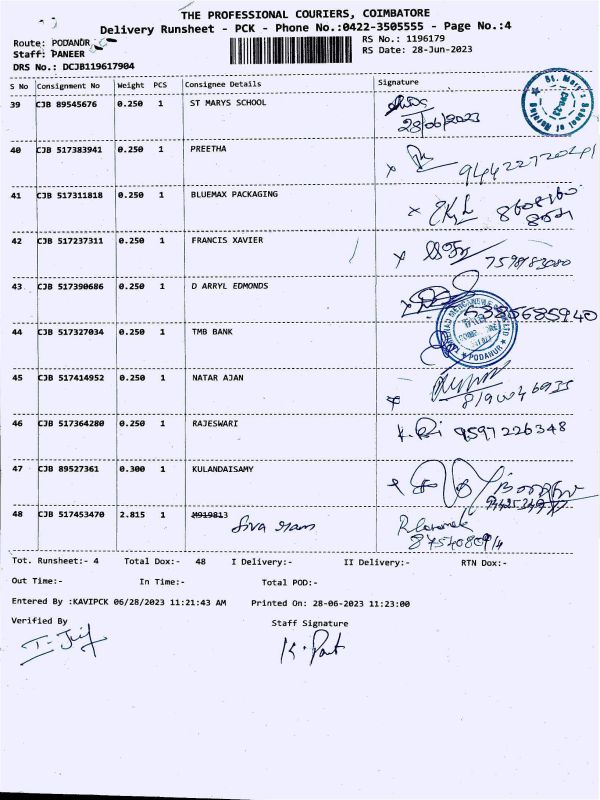 THE PROFESSIONAL COURIERS, COIMBATORE
Delivery Runsheet - PCK - Phone No.:0422-3505555 - Page No.:4
Route: PODANUR
RS No.: 1196179
Staff: PANEER
RS Date: 28-Jun-2023
DRS No.: DCJB119617904
S No Consignment No Weight PCS Consignee Details Signature
39 CJB 89545676 0.250 1 ST MARYS SCHOOL
28/06/2023
40 CJB 517383941 0.250 1 PREETHA
41 CJB 517311818 0.250 1 BLUEMAX PACKAGING
42 CJB 517237311 0.250 1 FRANCIS XAVIER
43 CJB 517390686 0.250 1 D ARRYL EDMONDS
44 CJB 517327034 0.250 1 TMB BANK
PODANUR
45 CJB 517414952 0.250 1 NATAR AJAN
46 CJB 517364280 0.250 1 RAJESWARI 9597226348
47 CJB 89527361 0.300 1 KULANDAISAMY
48 CJB 517453470 2.815 1 M919813
Siva Ham
Tot. Runsheet:- 4 Total Dox:- 48 I Delivery:- II Delivery:- RTN Dox:-
Out Time:- In Time:- Total POD:-
Entered By :KAVIPCK 06/28/2023 11:21:43 AM Printed On: 28-06-2023 11:23:00
Verified By Staff Signature